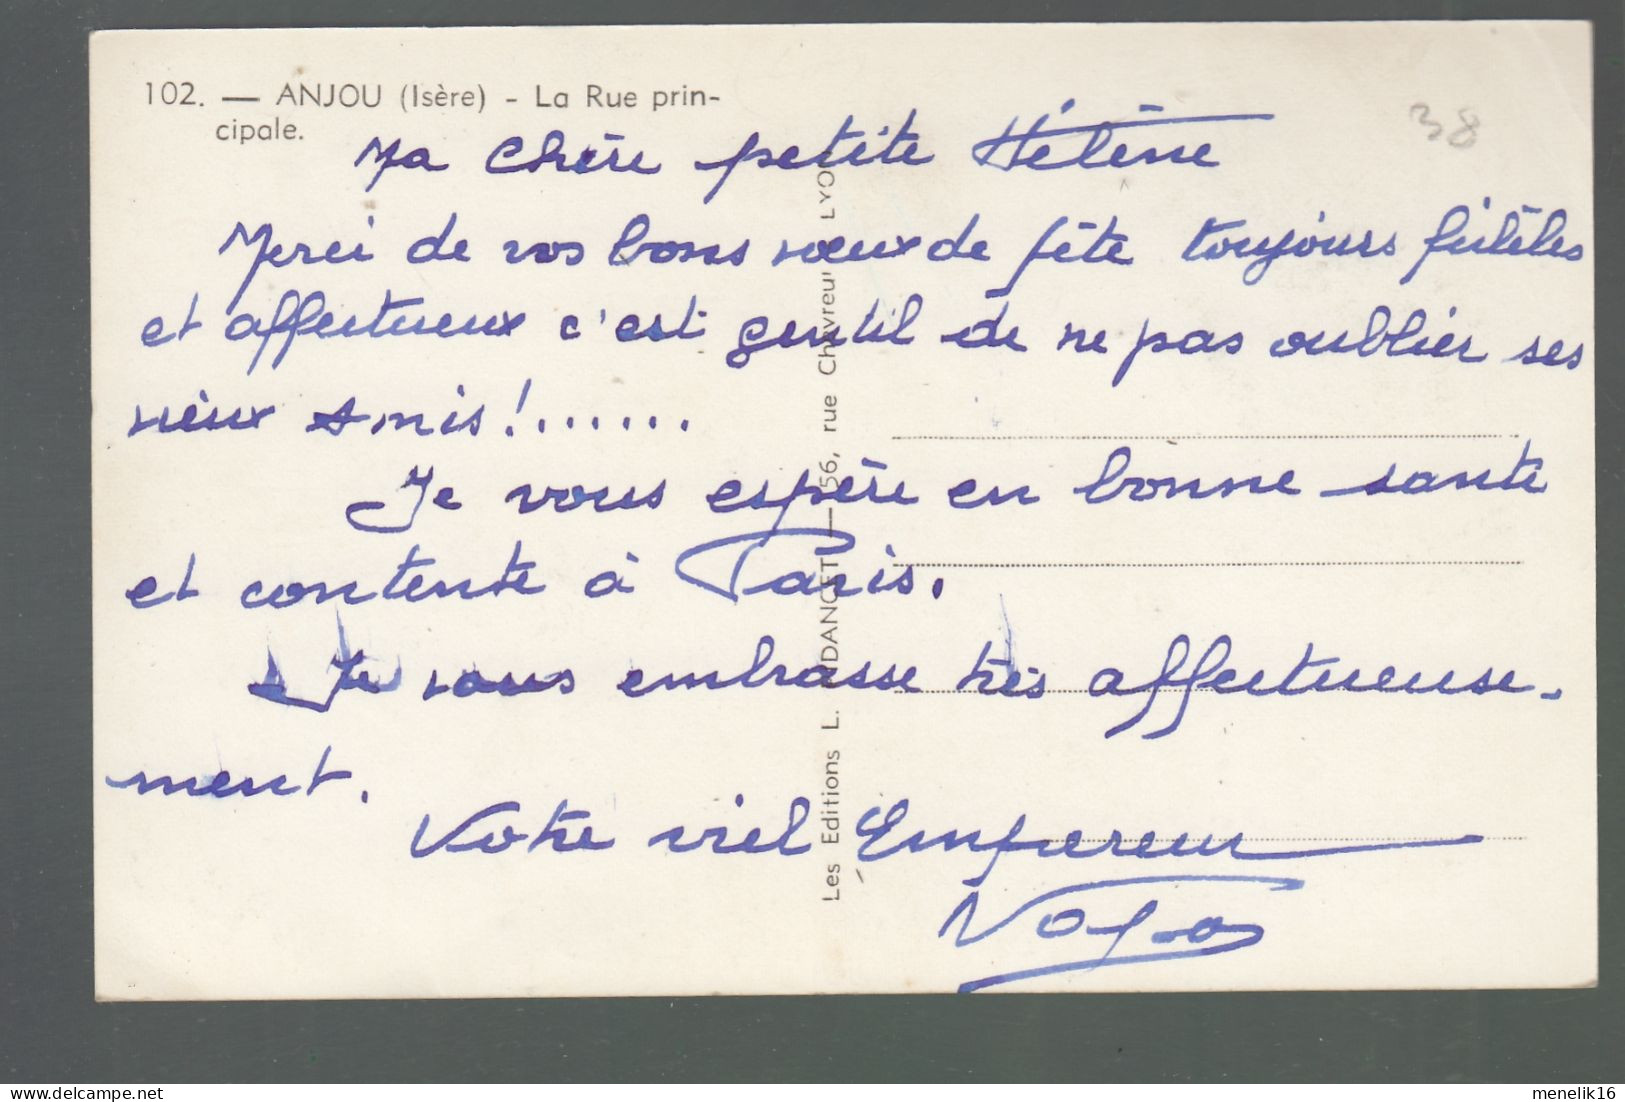 102. — ANJOU (Isère) - La Rue prin-
cipale.
38
Ma Chère petite Hélène
Merci de vos bons vœux de fête toujours fidèles
et affectueux c'est gentil de ne pas oublier ses
vieux Amis!.......
Je vous espère en bonne santé
et contente à Paris.
Je vous embrasse très affectueuse-
ment.
Votre viel Empereur
Les Editions L. — 56, rue Chevreul LYON
delcampe.net
menelik16